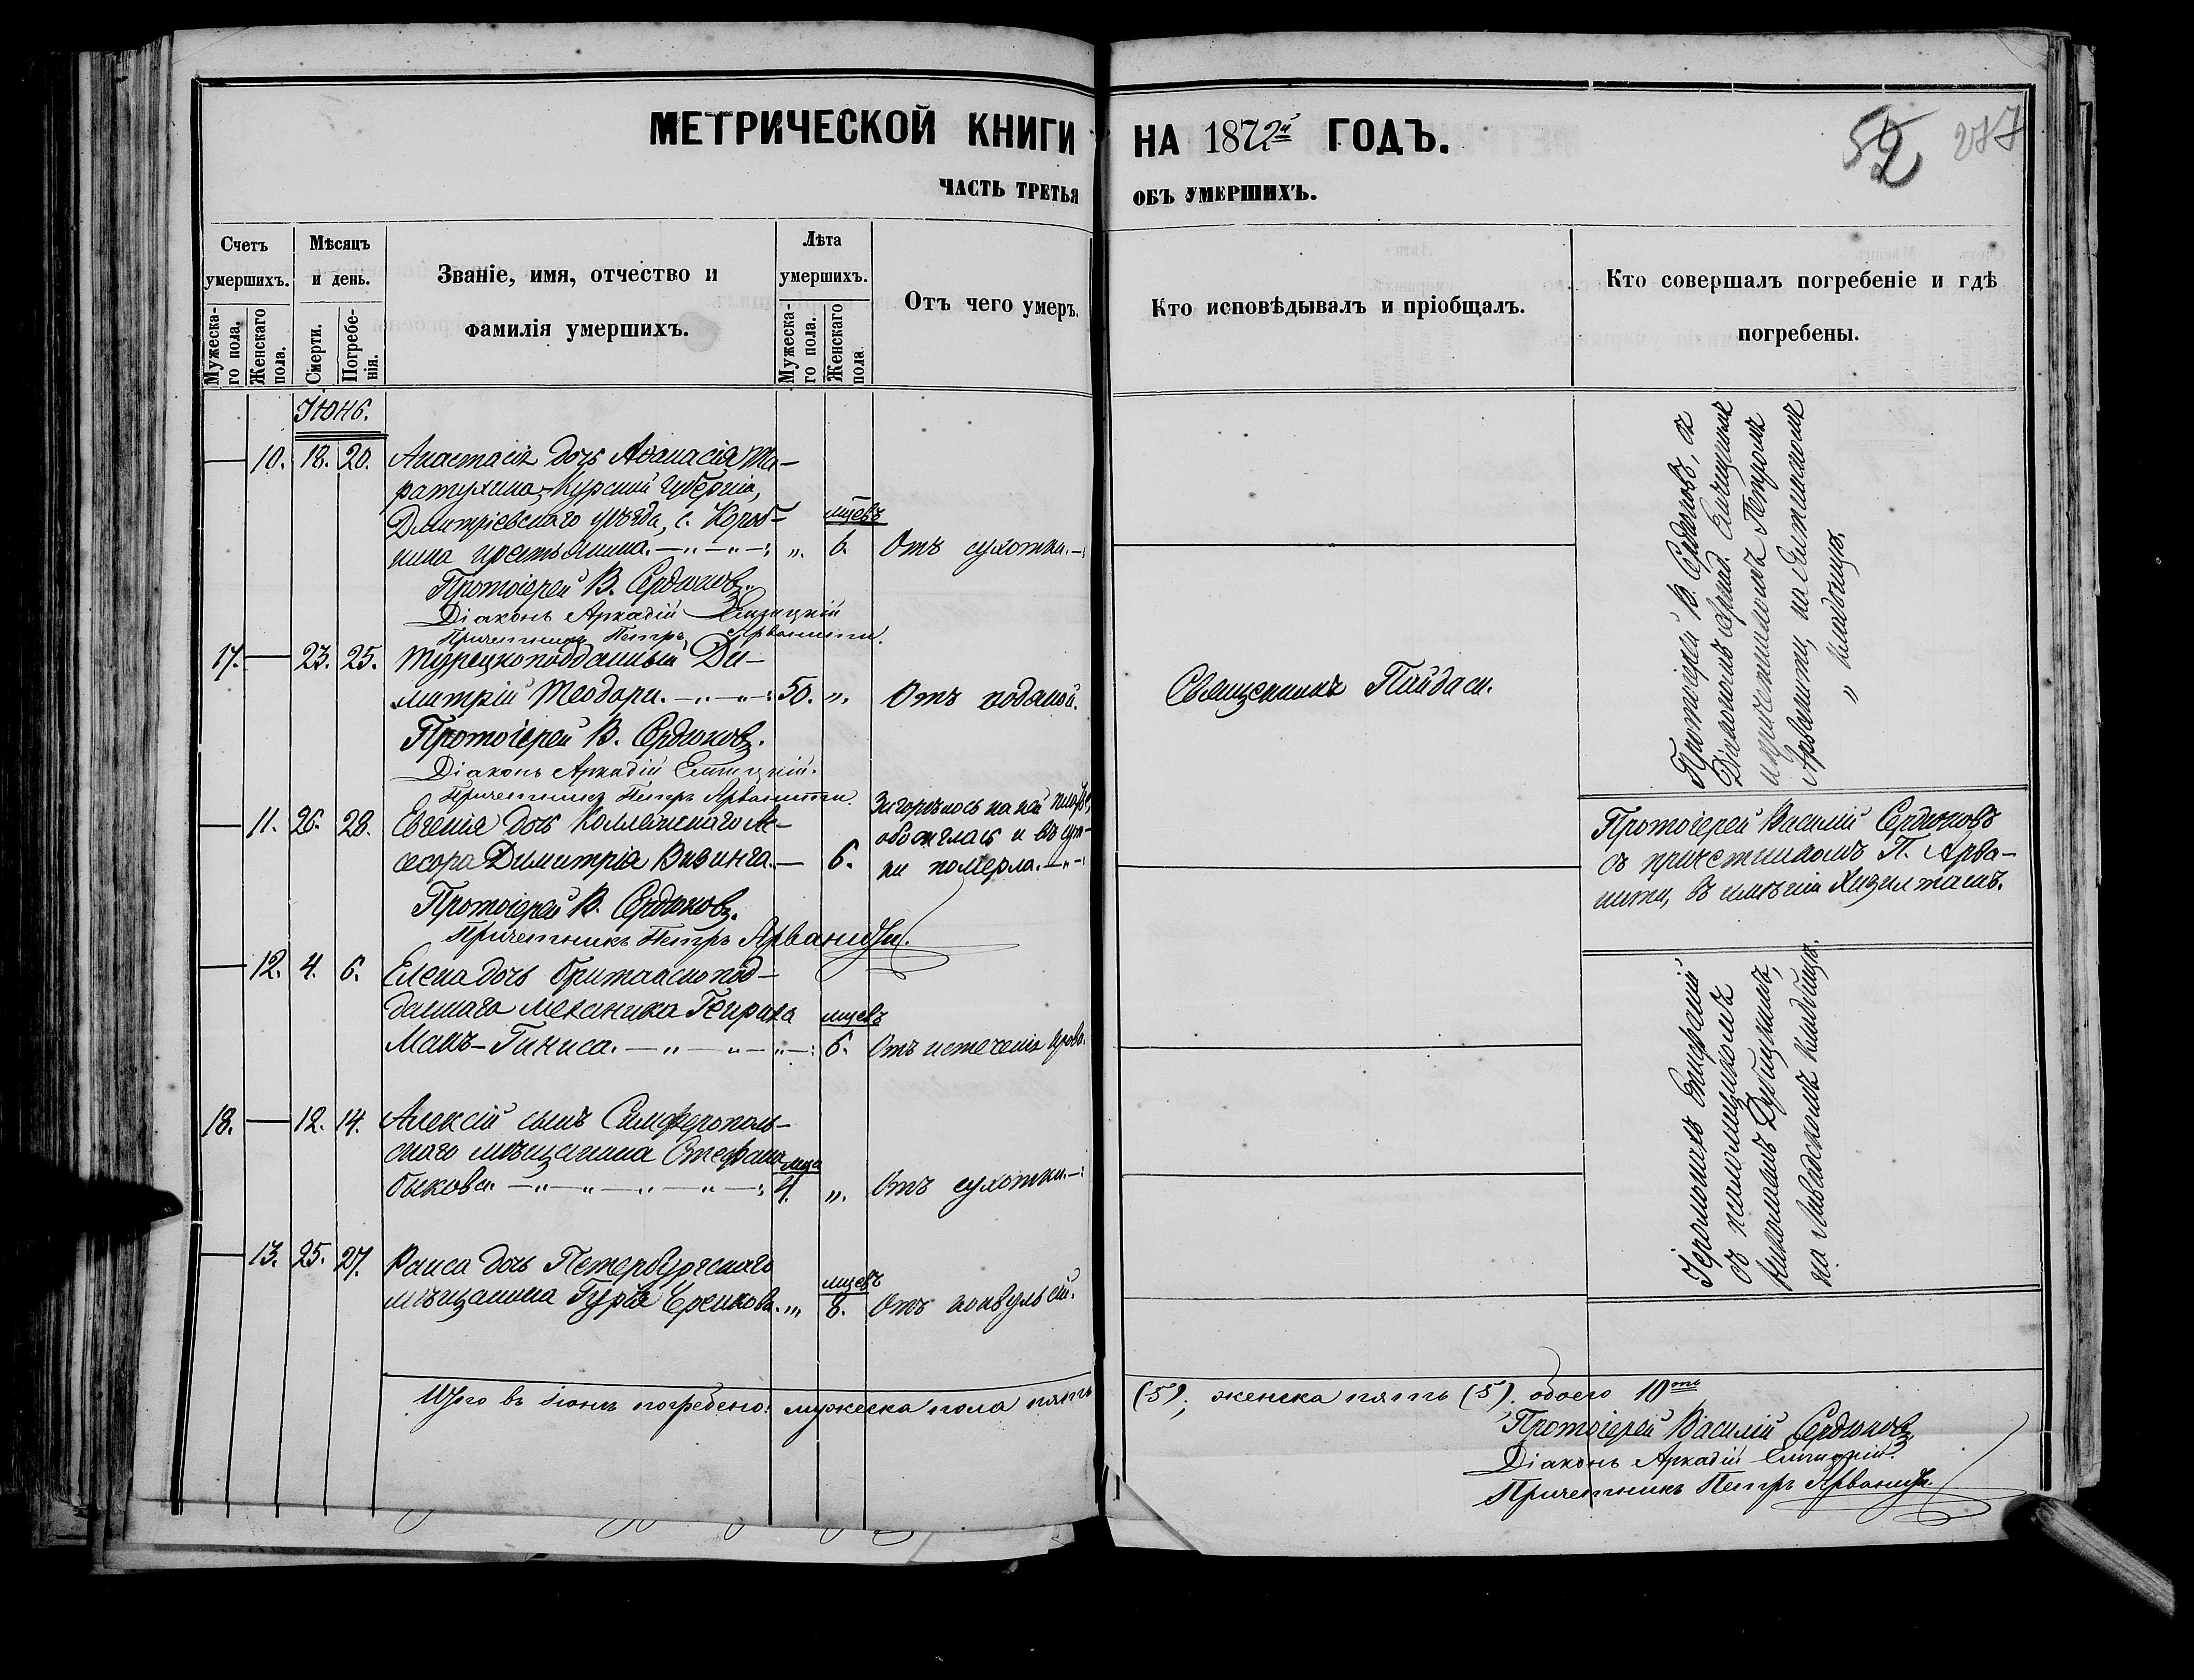 МЕТРИЧЕСКОЙ КНИГИ НА 1872й ГОДЪ.
52 277
ЧАСТЬ ТРЕТЬЯ ОБЪ УМЕРШИХЪ.
Счетъ умершихъ.
Мужеска-го пола.
Женскаго пола.
Мѣсяцъ и день.
Смерти.
Погребе-нія.
Званіе, имя, отчество и
фамилія умершихъ.
Лѣта умершихъ.
Мужеска-го пола.
Женскаго пола
Отъ чего умеръ.
Кто исповѣдывалъ и пріобщалъ.
Кто совершалъ погребеніе и гдѣ
погребены.
Іюнь.
— 10. 18. 20. Анастасія дочь Аѳанасія Та-
ратухина, Курской губерніи,
Дмитріевскаго уѣзда, с. Короб-
кина крестьянина. — „ — „ —: „ мцевъ 6. Отъ сухотки. —
Протоіерей В. Сердюковъ.
Діаконъ Аркадій
Причетникъ Петръ Арванити.
17. — 23. 25. Турецкоподданный Ди-
митрій Теодори. — „ — „ —: 50. „ Отъ водяной. Священникъ Пайдаси.
Протоіерей В. Сердюковъ.
Діаконъ Аркадій
Причетникъ Петръ Арванити.
— 11. 26. 28. Евгенія дочь Коллежскаго Ас-
сесора Димитрія Визинга. — 6.
Загорѣлось на ней платье,
обожглась и въ сут-
ки померла. — „ —
Протоіерей В. Сердюковъ.
Причетникъ Петръ Арванити.
— 12. 4. 6. Елена дочь Британскопод-
даннаго механика Генриха
Макъ-Гиниса. — „ — „ — „ —: мцевъ 6. Отъ истеченія крови.
18. — 12. 14. Алексій сынъ Симферополь-
скаго мѣщанина Стефана
Быкова. — „ — „ — „ — „ —: мца 4. „ Отъ сухотки. —
— 13. 25. 27. Раиса дочь Петербургскаго
мѣщанина Гурія Еренкова. „ мцевъ 8. Отъ конвульсій.
Протоіерей В. Сердюковъ, съ
Діакономъ Аркад.
и причетникомъ Петромъ
Арванити, на
„ кладбищѣ.
Протоіерей Василій Сердюковъ
съ причетникомъ П. Арва-
нити, въ имѣніи Кизилташъ.
Іеромонахъ
съ псаломщикомъ
Николаемъ Дубицкимъ,
на Ливадскомъ кладбищѣ.
Итого въ Іюнѣ погребено: мужеска пола пять (5); женска пять (5). обоего 10ть
Протоіерей Василій Сердюковъ
Діаконъ Аркадій
Причетникъ Петръ Арванити.